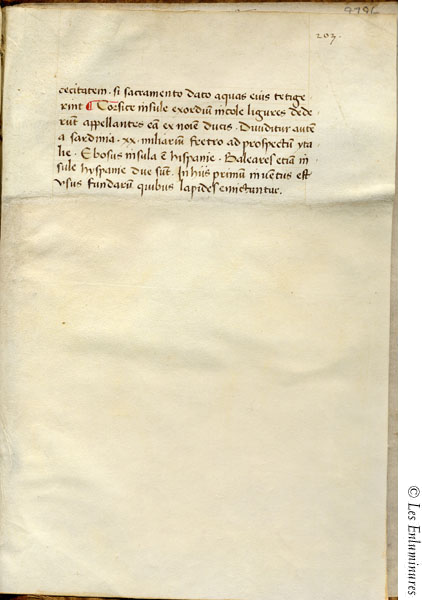 9796
203.
cecitatem. si sacramento dato aquas eius tetige
rint ¶ Corsice insule exordiũ incole ligures dede
rũt appellantes eã ex noĩe ducis. Diuiditur autẽ
a sardinia. xx. miliariũ fretro ad prospectũ yta
lie. Ebosus insula ẽ hispanie. Baleares etiã in
sule hyspanie due sũt. In hiis primũ inuentus est
vsus fundarũ quibus lapides emictuntur.
© Les Enluminures